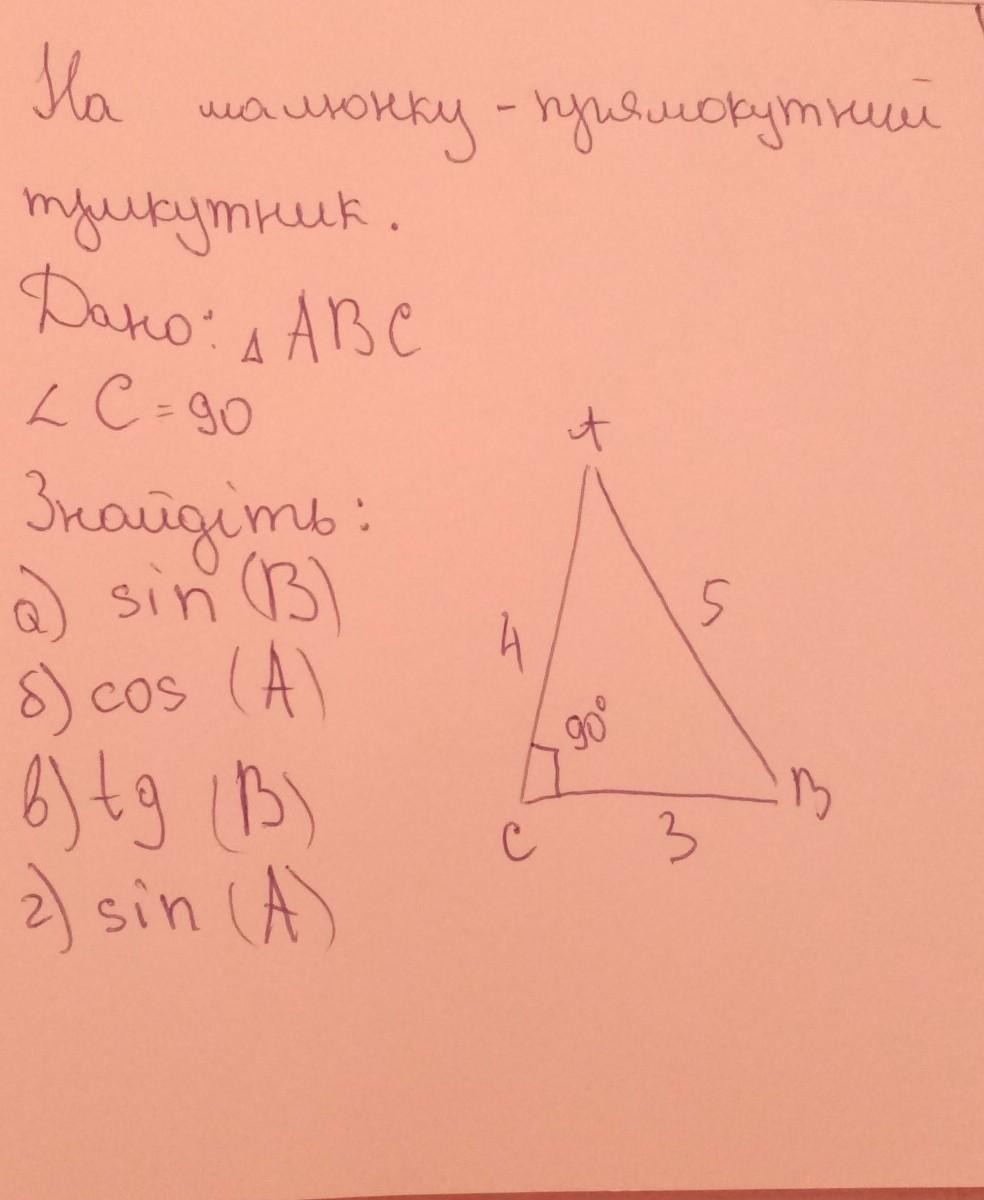 На малюнку - прямокутний
трикутник.
Дано: △ ABC
∠ C = 90
Знайдіть:
а) sin (B)
б) cos (A)
в) tg (B)
г) sin (A)
A
4
5
90°
C
3
B